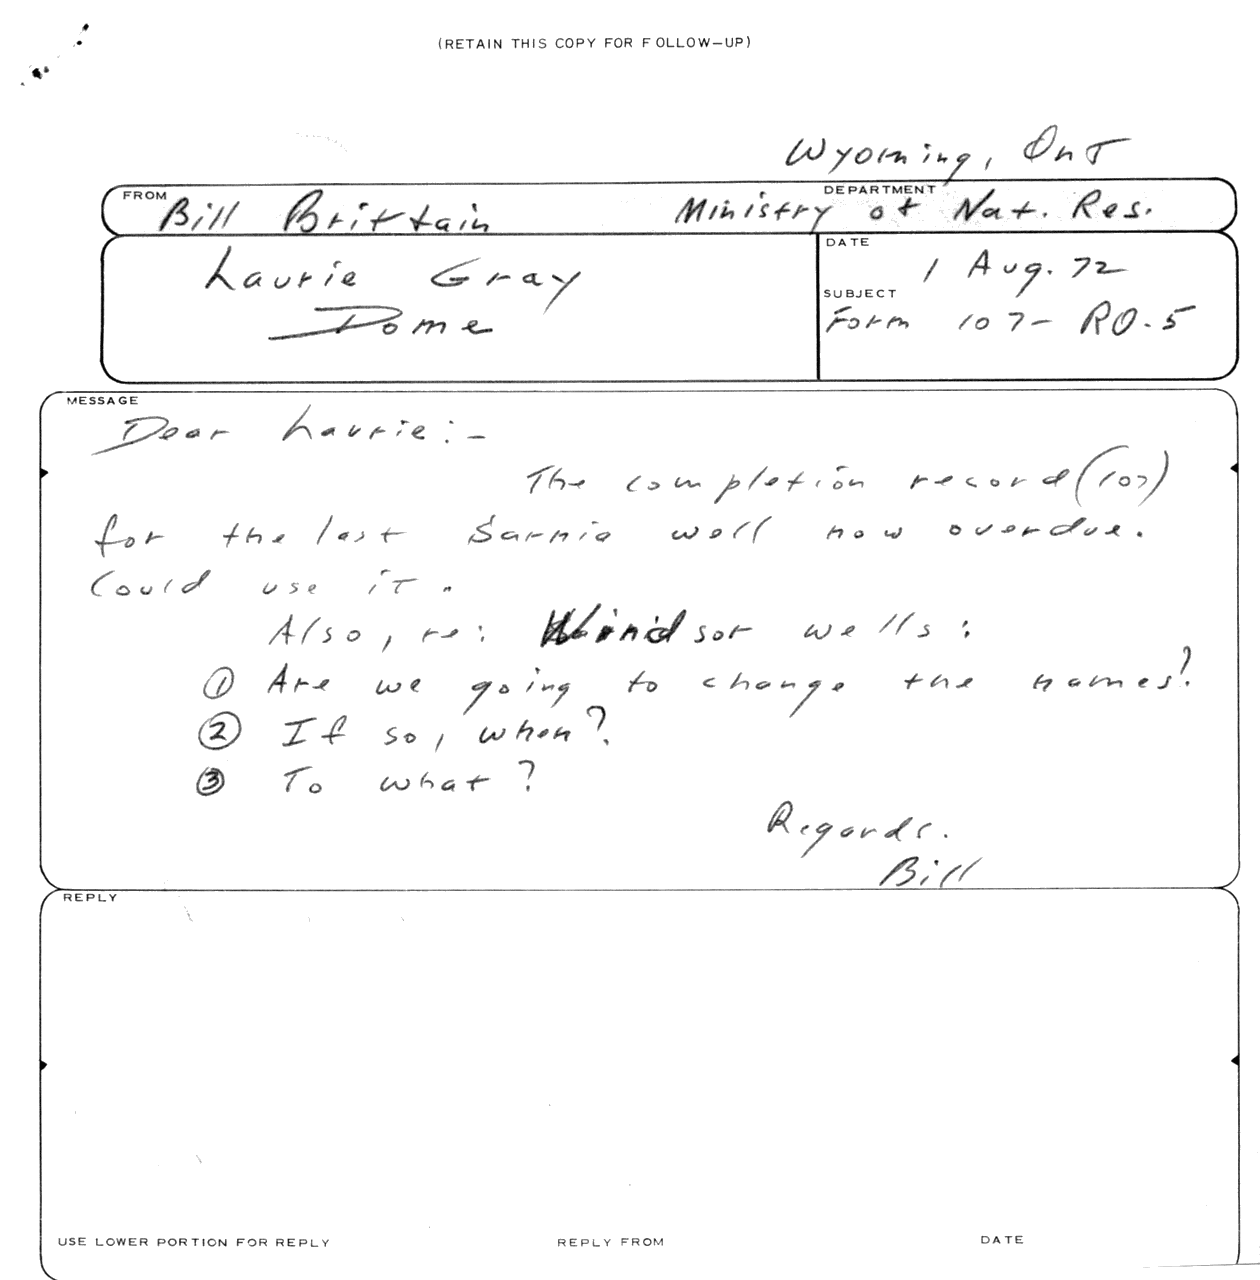 (RETAIN THIS COPY FOR FOLLOW-UP)
Wyoming, Ont
FROM
DEPARTMENT
Bill Brittain Ministry of Nat. Res.
Laurie Gray
Dome
DATE
1 Aug. 72
SUBJECT
Form 107- RO.5
MESSAGE
Dear Laurie:-
The completion record (107)
for the last Sarnia well now overdue.
Could use it.
Also, re: Windsor wells:
① Are we going to change the names?
② If so, when?
③ To what?
Regards.
Bill
REPLY
USE LOWER PORTION FOR REPLY REPLY FROM DATE